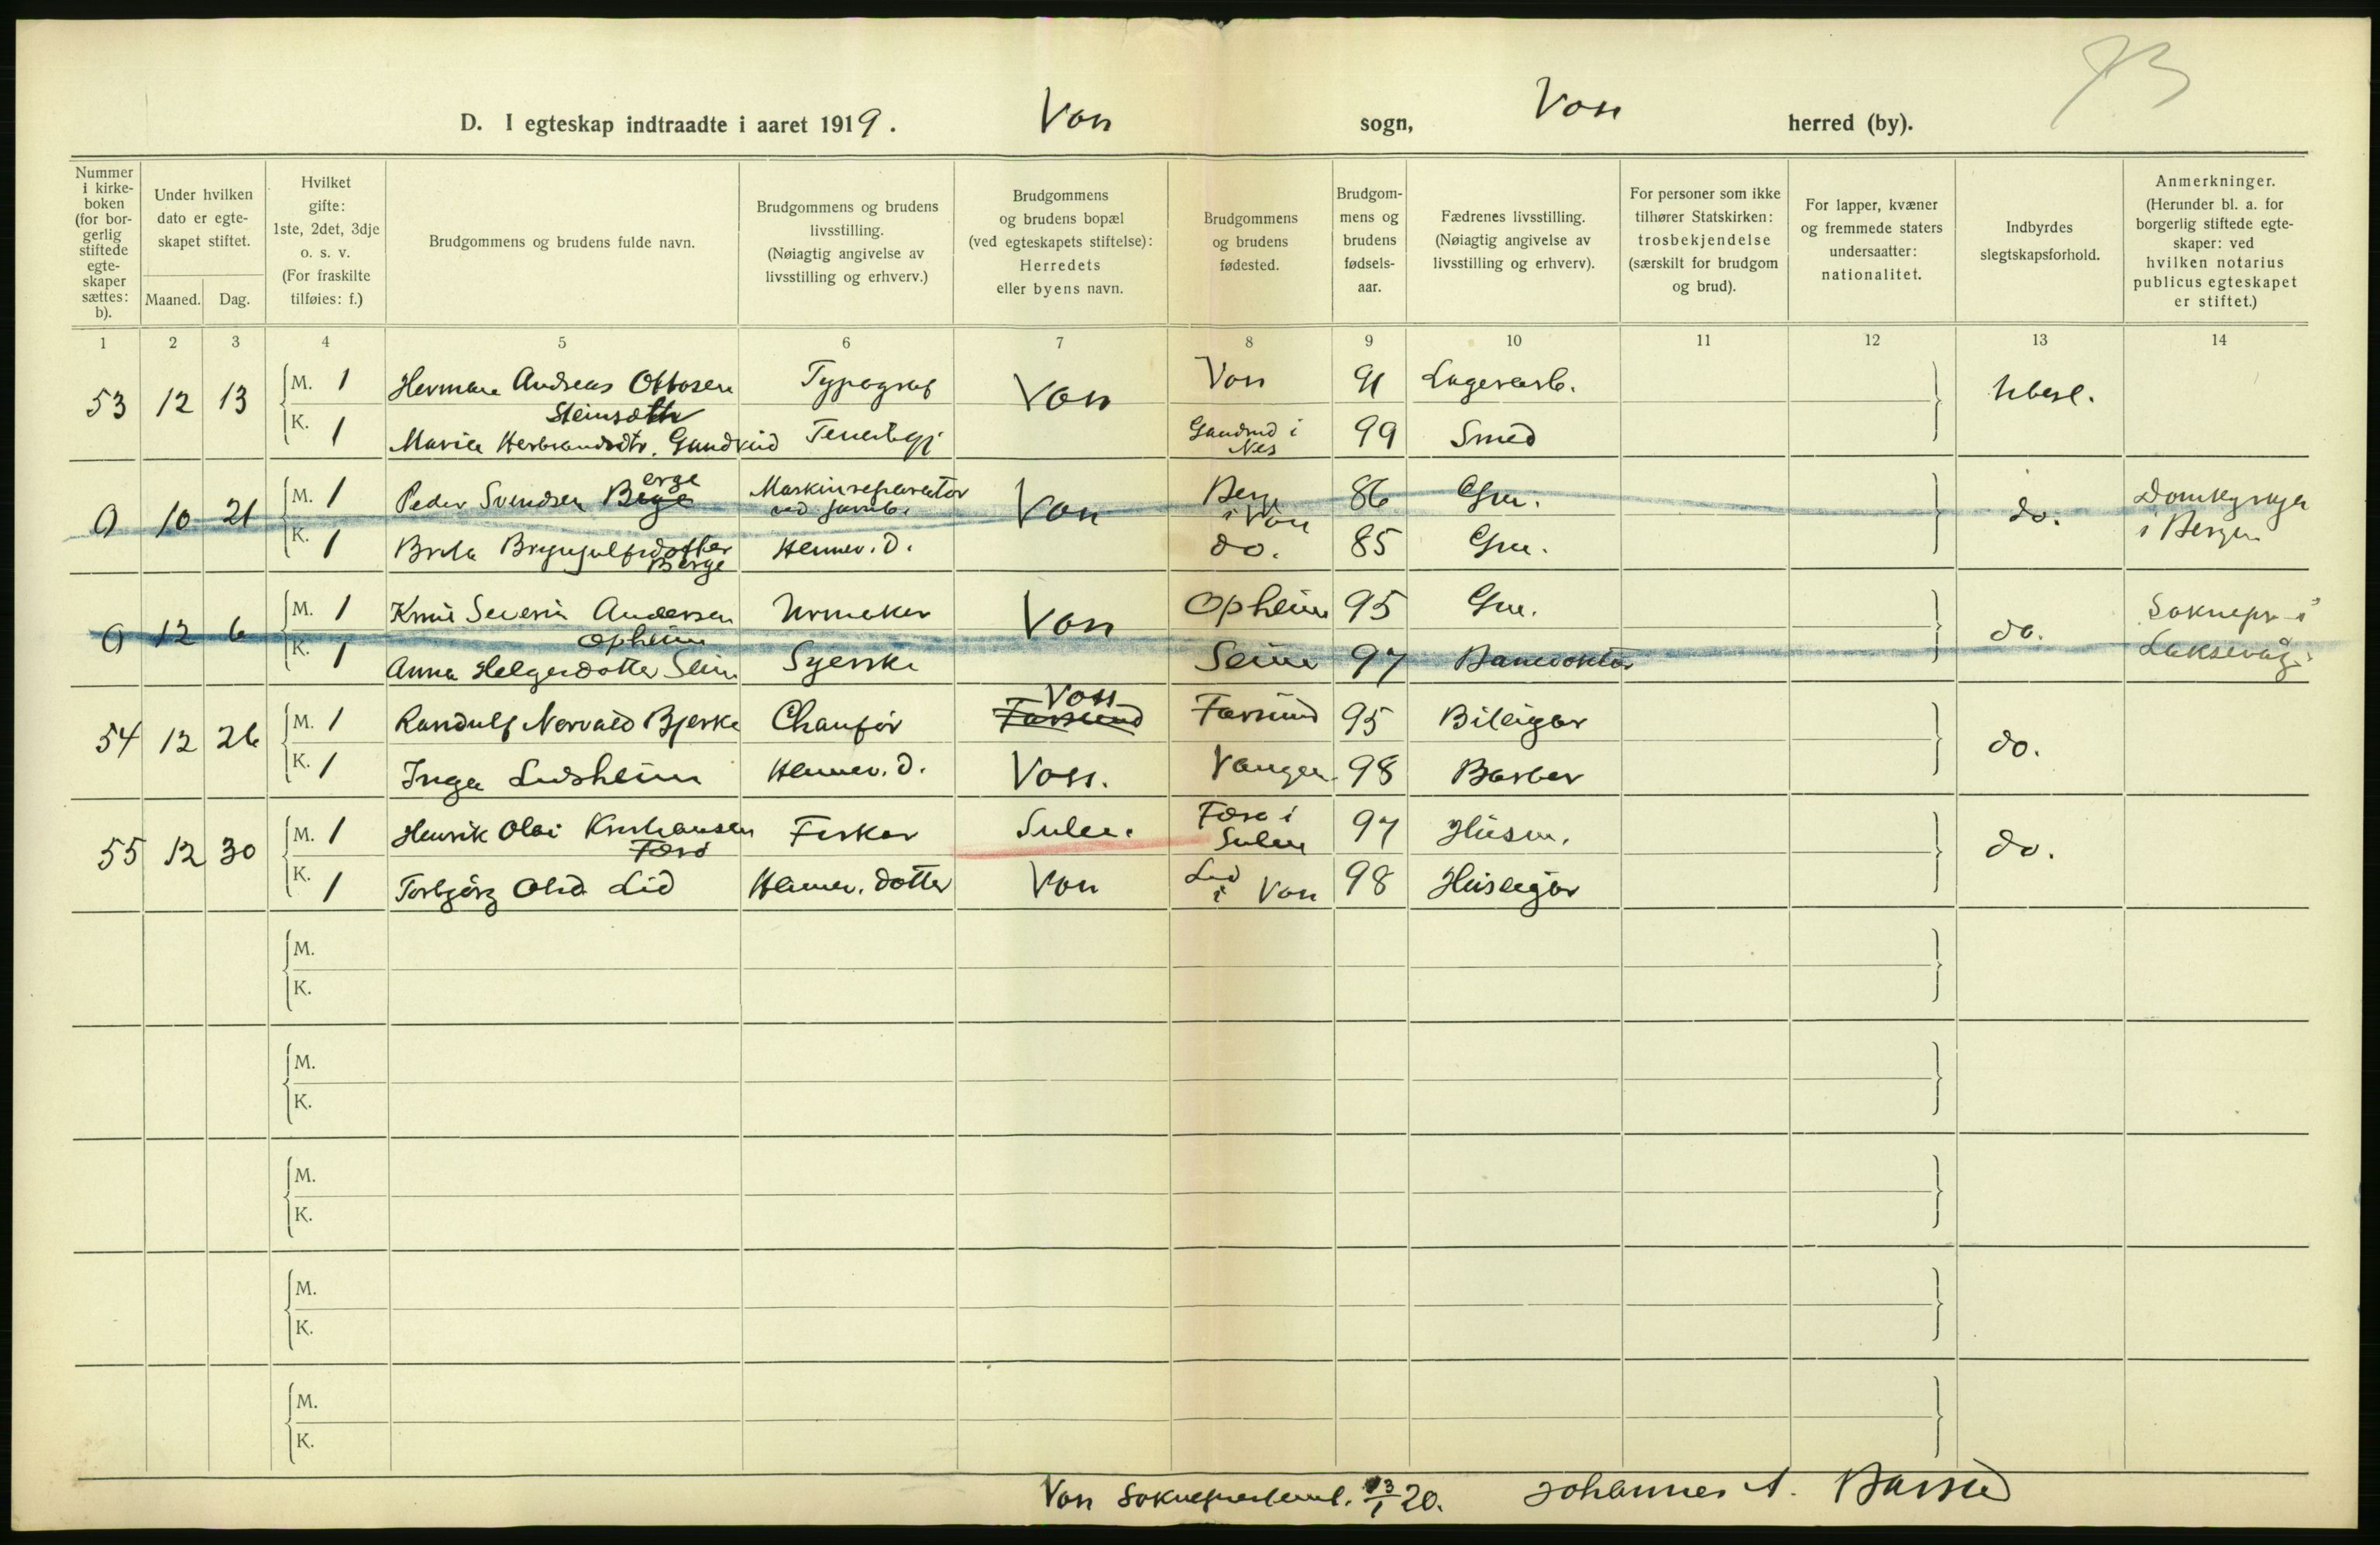 D. I egteskap indtraadte i aaret 1919. Voss sogn, Voss herred (by).
Nummer i kirke-boken (for bor-gerlig stiftede egte-skaper sættes: b).
Under hvilken dato er egte-skapet stiftet.
Maaned. Dag.
Hvilket gifte: 1ste, 2det, 3dje o. s. v. (For fraskilte tilføies: f.)
Brudgommens og brudens fulde navn.
Brudgommens og brudens livsstilling. (Nøiagtig angivelse av livsstilling og erhverv.)
Brudgommens og brudens bopæl (ved egteskapets stiftelse): Herredets eller byens navn.
Brudgommens og brudens fødested.
Brudgom-mens og brudens fødsels-aar.
Fædrenes livsstilling. (Nøiagtig angivelse av livsstilling og erhverv).
For personer som ikke tilhører Statskirken: trosbekjendelse (særskilt for brudgom og brud).
For lapper, kvæner og fremmede staters undersaatter: nationalitet.
Indbyrdes slegtskapsforhold.
Anmerkninger. (Herunder bl. a. for borgerlig stiftede egte-skaper: ved hvilken notarius publicus egteskapet er stiftet.)
1 2 3 4 5 6 7 8 9 10 11 12 13 14
53 12 13 M. 1 Herman Andreas Ottosen Typograf Voss Voss 91 Lagerarb. Ubesl.
Steinsæth
K. 1 Maria Herbrandsdtr. Gandrud Gandrud i Nes 99 Smed
10 21 M. 1 Peder Svendsen Berge Maskinreparatør Voss Berge i Voss 86 Gm. do. Domkyrkja i Bergen
K. 1 Brita Brynjulfsdotter Berge Heimev. d. do. 85 Gm.
12 6 M. 1 Knut Severin Andersen Urmaker Voss Opheim 95 Gm. do. Soknepr. i Laksevåg
Opheim
K. 1 Anna Helgesdotter Seim Syerske Seim 97
54 12 26 M. 1 Randulf Norvald Bjerke Chauför Voss Farsund Farsund 95 Bileigar do.
K. 1 Inga Lidsheim Heimev. d. Voss. Vangen 98 Barber
55 12 30 M. 1 Henrik Olai Kristiansen Fiskar Sulen. Færø i Sulen 97 Husm. do.
Færø
K. 1 Torbjörg Olsd. Lid Heimev. dotter Voss Lid i Voss 98 Huseigar
M.
K.
M.
K.
M.
K.
M.
K.
M.
K.
Voss Sokneprestemb. 13/1 20. Johannes A. Barsted